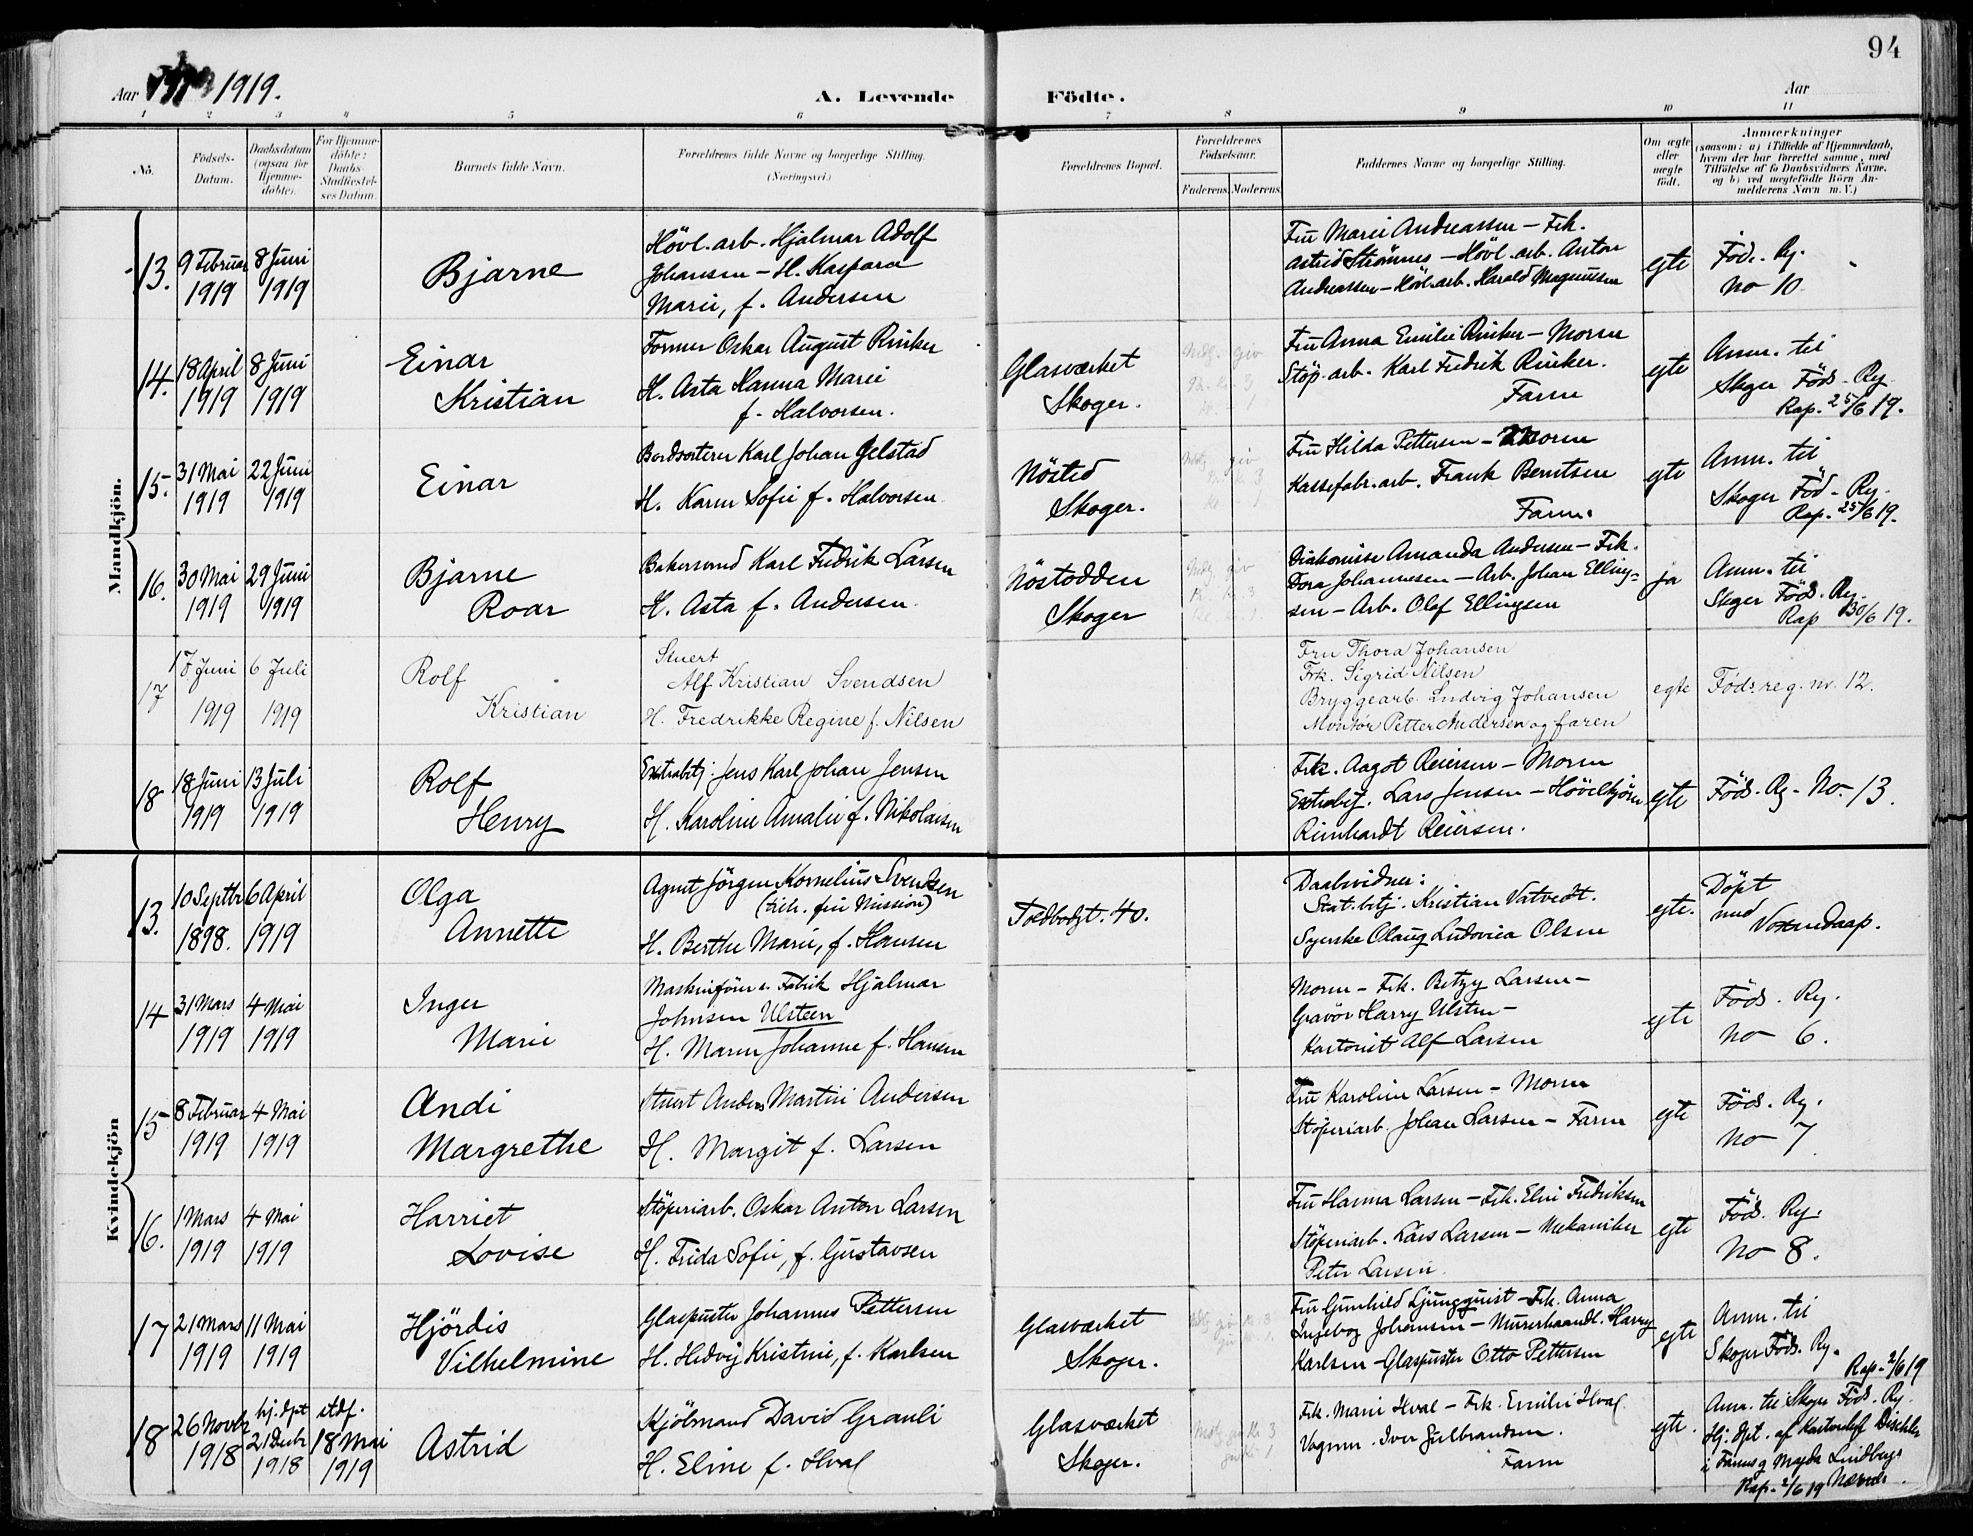 94
Aar 1919.
A. Levende Födte.
Aar
1 2 3 4 5 6 7 8 9 10 11
No.
Födsels-Datum.
Daabsdatum (ogsaa for Hjemme-döbte).
For Hjemme-döbte: Daabs Stadfæstel-ses Datum.
Barnets fulde Navn.
Forældrenes fulde Navne og borgerlige Stilling. (Næringsvei.)
Forældrenes Bopæl.
Forældrenes Födselsaar.
Faderens. Moderens.
Faddernes Navne og borgerlige Stilling.
Om ægte eller uægte födt.
Anmærkninger
(saasom: a) i Tilfælde af Hjemmedaab, hvem der har forrettet samme, med Tilföielse af to Daabsvidners Navne, og b) ved uægtefödte Börn An-melderens Navn m. V.)
Mandkjön.
13. 9 Februar 1919
8 Juni 1919
Bjarne
Hövl. arb. Hjalmar Adolf
Johansen – H. Kaspara
Marie, f. Andersen
Fru Marie Andreassen – Frk.
Astrid Strömnes – Hövl. arb. Anton
Andreassen – Hövl. arb. Harald Magnussen
egte
Föd. Rg.
No 10
14. 18 April 1919
8 Juni 1919
Einar
Kristian
Former Oskar August Rinker
H. Asta Hanna Marie
f. Halvorsen.
Glasværket
Skoger.
Fru Anna Emilie Rinker – Moren
Stöp. arb. Karl Fredrik Rinker.
Faren
egte
Anm. til
Skger Föds. Rg.
Rap. 25/6 19.
15. 31 Mai 1919
22 Juni 1919
Einar
Bordsorterer Karl Johan Gelstad
H. Karen Sofie f. Halvorsen
Nösted
Skoger.
Fru Hilda Pettersen – Moren
Kassefabr. arb. Frank Berntsen
Faren.
egte
Anm. til
Skoger Föd. Rg.
Rap. 25/6 19.
16. 30 Mai 1919
29 Juni 1919
Bjarne
Roar
Bakersvend Karl Fredrik Larsen
H. Asta f. Andersen.
Nöstodden
Skoger
Diakonisse Amanda Andersen – Frk.
Dora Johannesen – Arb. Johan Elling-
sen – Arb. Olaf Ellingsen
ja
Anm. til
Skger Föds. Rg.
Rap 30/6 19.
17 Juni 1919
6 Juli 1919
Rolf
Kristian
Stuert
Alf Kristian Svendsen
H. Fredrikke Regine f. Nilsen
Fru Thora Johansen
Frk. Sigrid Nilsen
Bryggearb. Ludvig Johansen
Montör Petter Andersen og faren
egte
Föds. reg. nr. 12.
18 18 Juni 1919
13 Juli 1919
Rolf
Henry
Extrabetj. Jens Karl Johan Jensen
H. Karoline Amalie f. Nikolaisen
Frk. Aagot Reiersen – Moren
Extrabetj. Lars Jensen – Hövelkjörer
Reinhardt Reiersen.
egte
Föds. Rg. No. 13.
Kvindekjön
13. 10 Septbr 1898.
6 April 1919
Olga
Annette
Agent Jörgen Kornelius Svendsen
(tilh. frie Mission)
H. Berthe Marie, f. Hansen
Toldbodgt. 40.
Daabsvidner:
Stat. betj. Kristian Vatvedt.
Syerske Olaug Ludovica Olsen
egte.
Döpt
med
Voxendaap.
14 31 Mars 1919
4 Mai 1919
Inger
Marie
Hjalmar
Johnsen Ulsteen
H. Maren Johanne f. Hansen
Moren – Frk. Betzy Larsen –
Gravör Harry Ulsten –
Kartonist Alf Larsen
egte
Föds. Rg.
No 6.
15 8 Februar 1919
4 Mai 1919
Andi
Margrethe
Stuert Anders Martin Andersen
H. Margit f. Larsen
Fru Karoline Larsen – Moren
Stöperiarb. Johan Larsen – Faren
egte
Föds. Rg.
No 7
16. 1 Mars 1919
4 Mai 1919
Harriet
Lovise
Stöperiarb. Oskar Anton Larsen
H. Frida Sofie, f. Gustavsen
Fru Hanna Larsen – Frk. Elni Fredriksen
Stöperiarb. Lars Larsen – Mekaniker
Peter Larsen.
egte
Föds. Rg.
No 8.
17 21 Mars 1919
11 Mai 1919
Hjördis
Vilhelmine
Glaspuster Johannes Pettersen
H. Hedvig Kristine, f. Karlsen
Glasværket
Skoger.
Fru Gunhild Ljungquist – Frk. Anna
Ingeborg Johansen – Murerhaandl. Harry
Karlsen – Glaspuster Otto Pettersen
egte
Anm. til
Skoger Föds. Rg.
Rap. 2/6 19
18 26 Novbr 1918
hj. dpt 21 Decbr 1918
stdf. 18 Mai 1919
Astrid
Kjöbmand David Granli
H. Eline f. Hval
Glasværket
Skoger.
Frk. Marie Hval – Frk. Emilie Hval
Vognm. Iver Gulbrandsen.
Faren
egte.
Anm. til Skoger Föd. Rg.
Hj. dpt. af
Magda Lindberg
Rap. 2/6 19